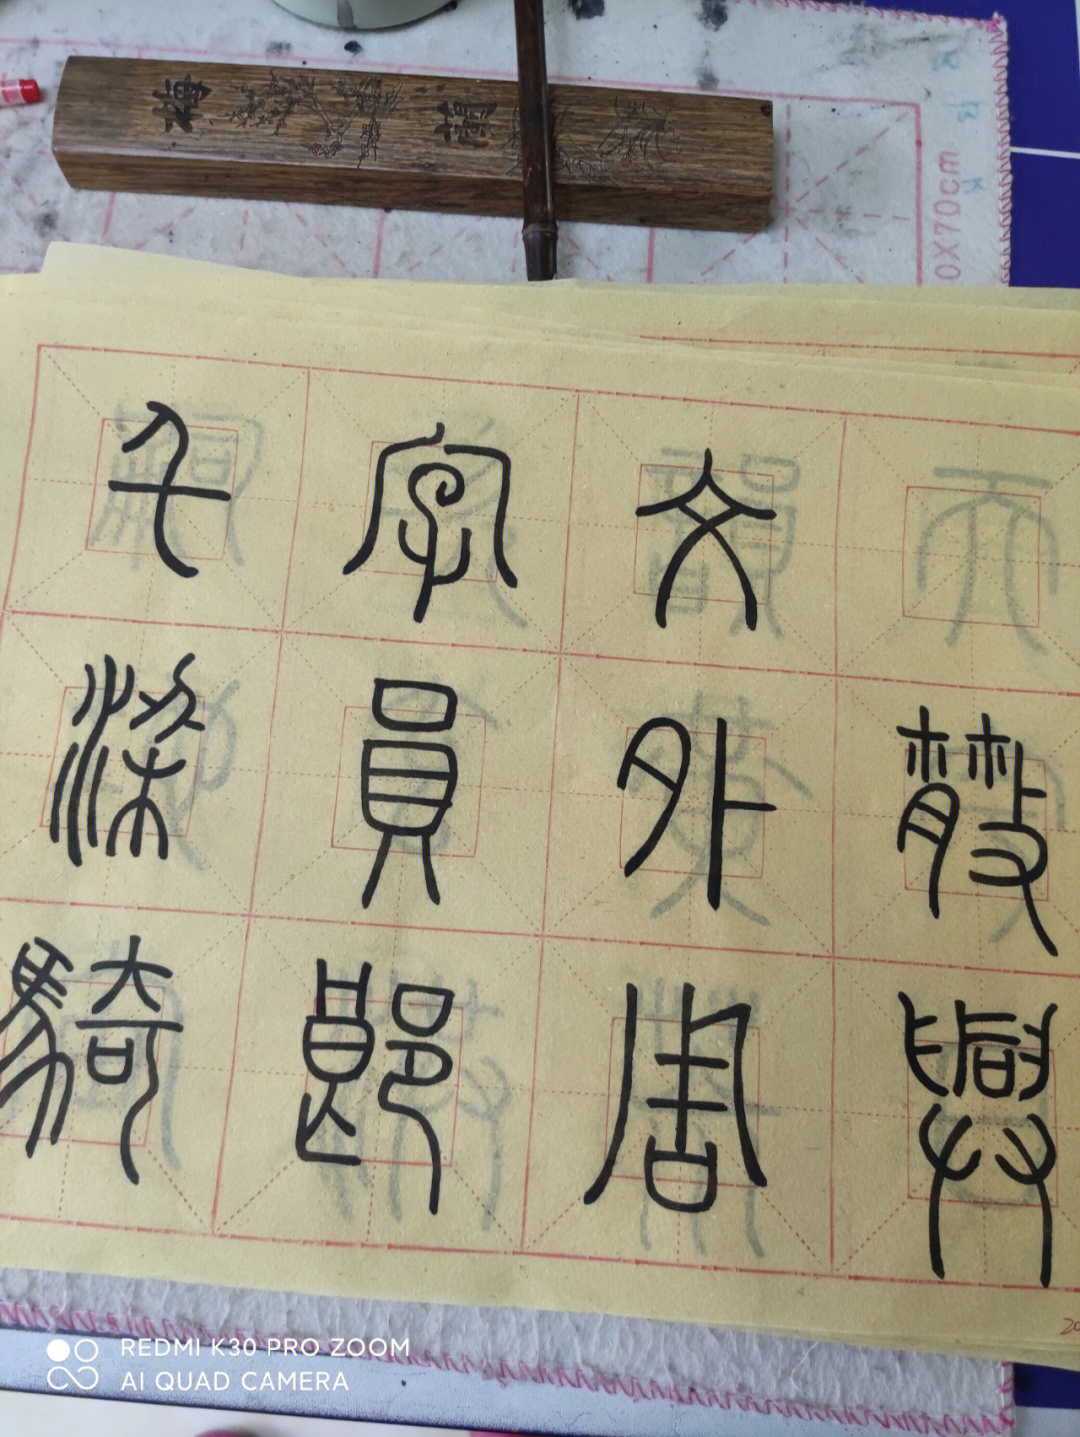 梅 蘭
0X70cm
千字文
梁員外散
騎郎周興
REDMI K30 PRO ZOOM
AI QUAD CAMERA